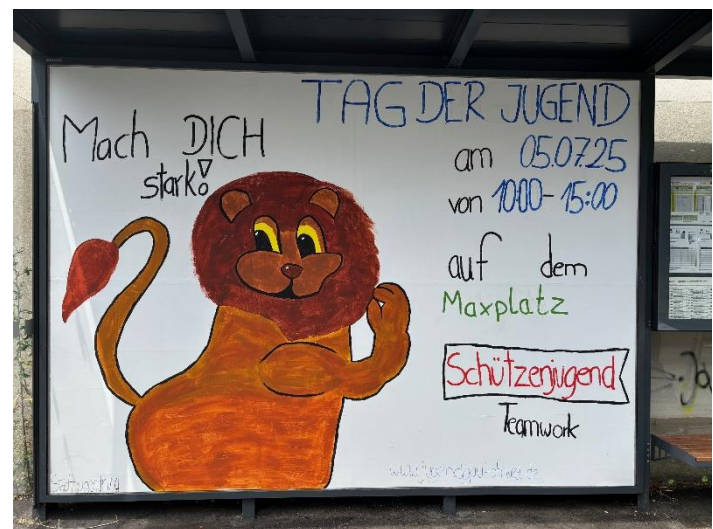 Mach DICH
stark!
TAG DER JUGEND
am 05.07.25
von 10:00-15:00
auf dem
Maxplatz
Schützenjugend
Teamwork